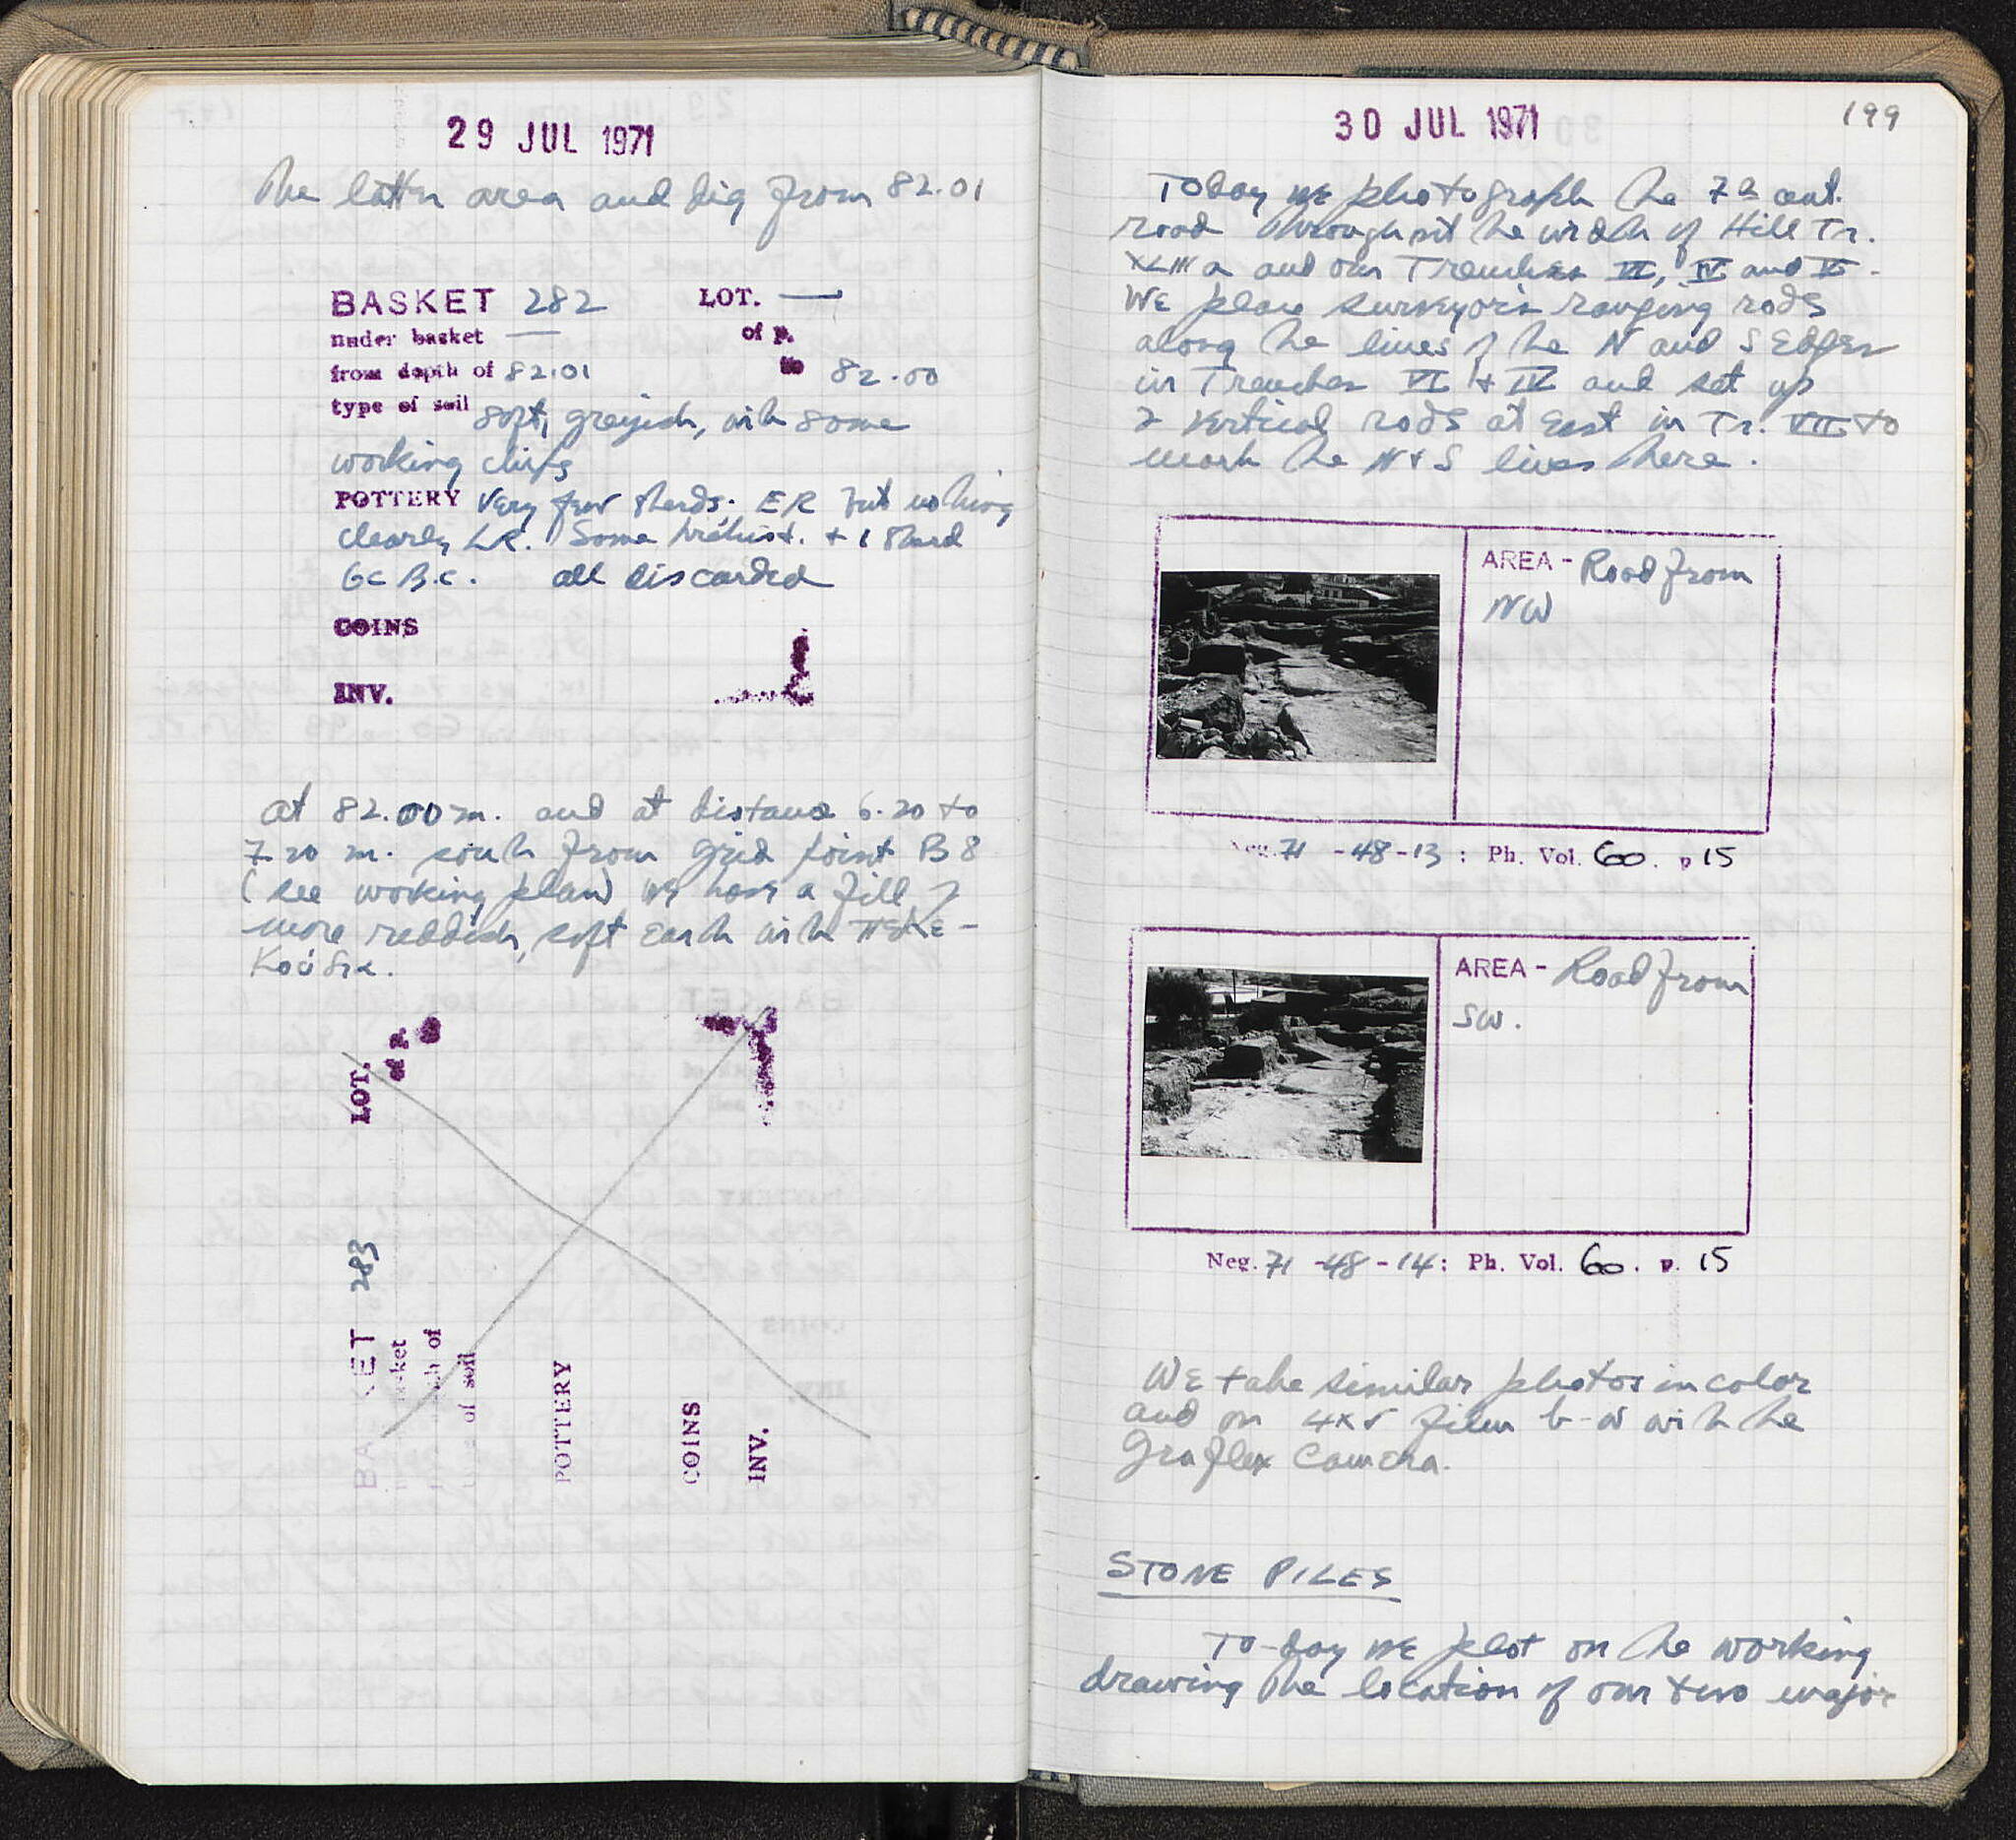 29 JUL 1971
The latter area and dig from 82.01
BASKET 282 LOT. —
under basket — of p.
from depth of 82.01 to 82.00
type of soil soft, greyish, with some
working chips
POTTERY Very few sherds. ER but nothing
clearly LR. Some prehist. + 1 sherd
6c B.C. all discarded
COINS
INV.
at 82.00 m. and at distance 6.20 to
7.20 m. south from grid point B 8
(see working plan) we have a fill of
more reddish, soft earth with πελε-
κούδια.
LOT.
of p.
BASKET 283
basket
depth of
of soil
POTTERY
COINS
INV.
30 JUL 1971
199
Today we photograph the 7th cent.
road throughout the width of Hill Tr.
XLIII a and our Trenches VI, IV and V.
We place surveyor's ranging rods
along the lines of the N and S Edges
in Trenches VI + IV and set up
2 vertical rods at East in Tr. VII to
mark the N + S lines there.
AREA - Road from
NW
Neg. 71 - 48 - 13 : Ph. Vol. 60. p 15
AREA - Road from
SW.
Neg. 71 - 48 - 14 : Ph. Vol. 60. p. 15
We take similar photos in color
and on 4x5 film b-w with the
Graflex Camera.
STONE PILES
To-day we plot on the working
drawing the location of our two major